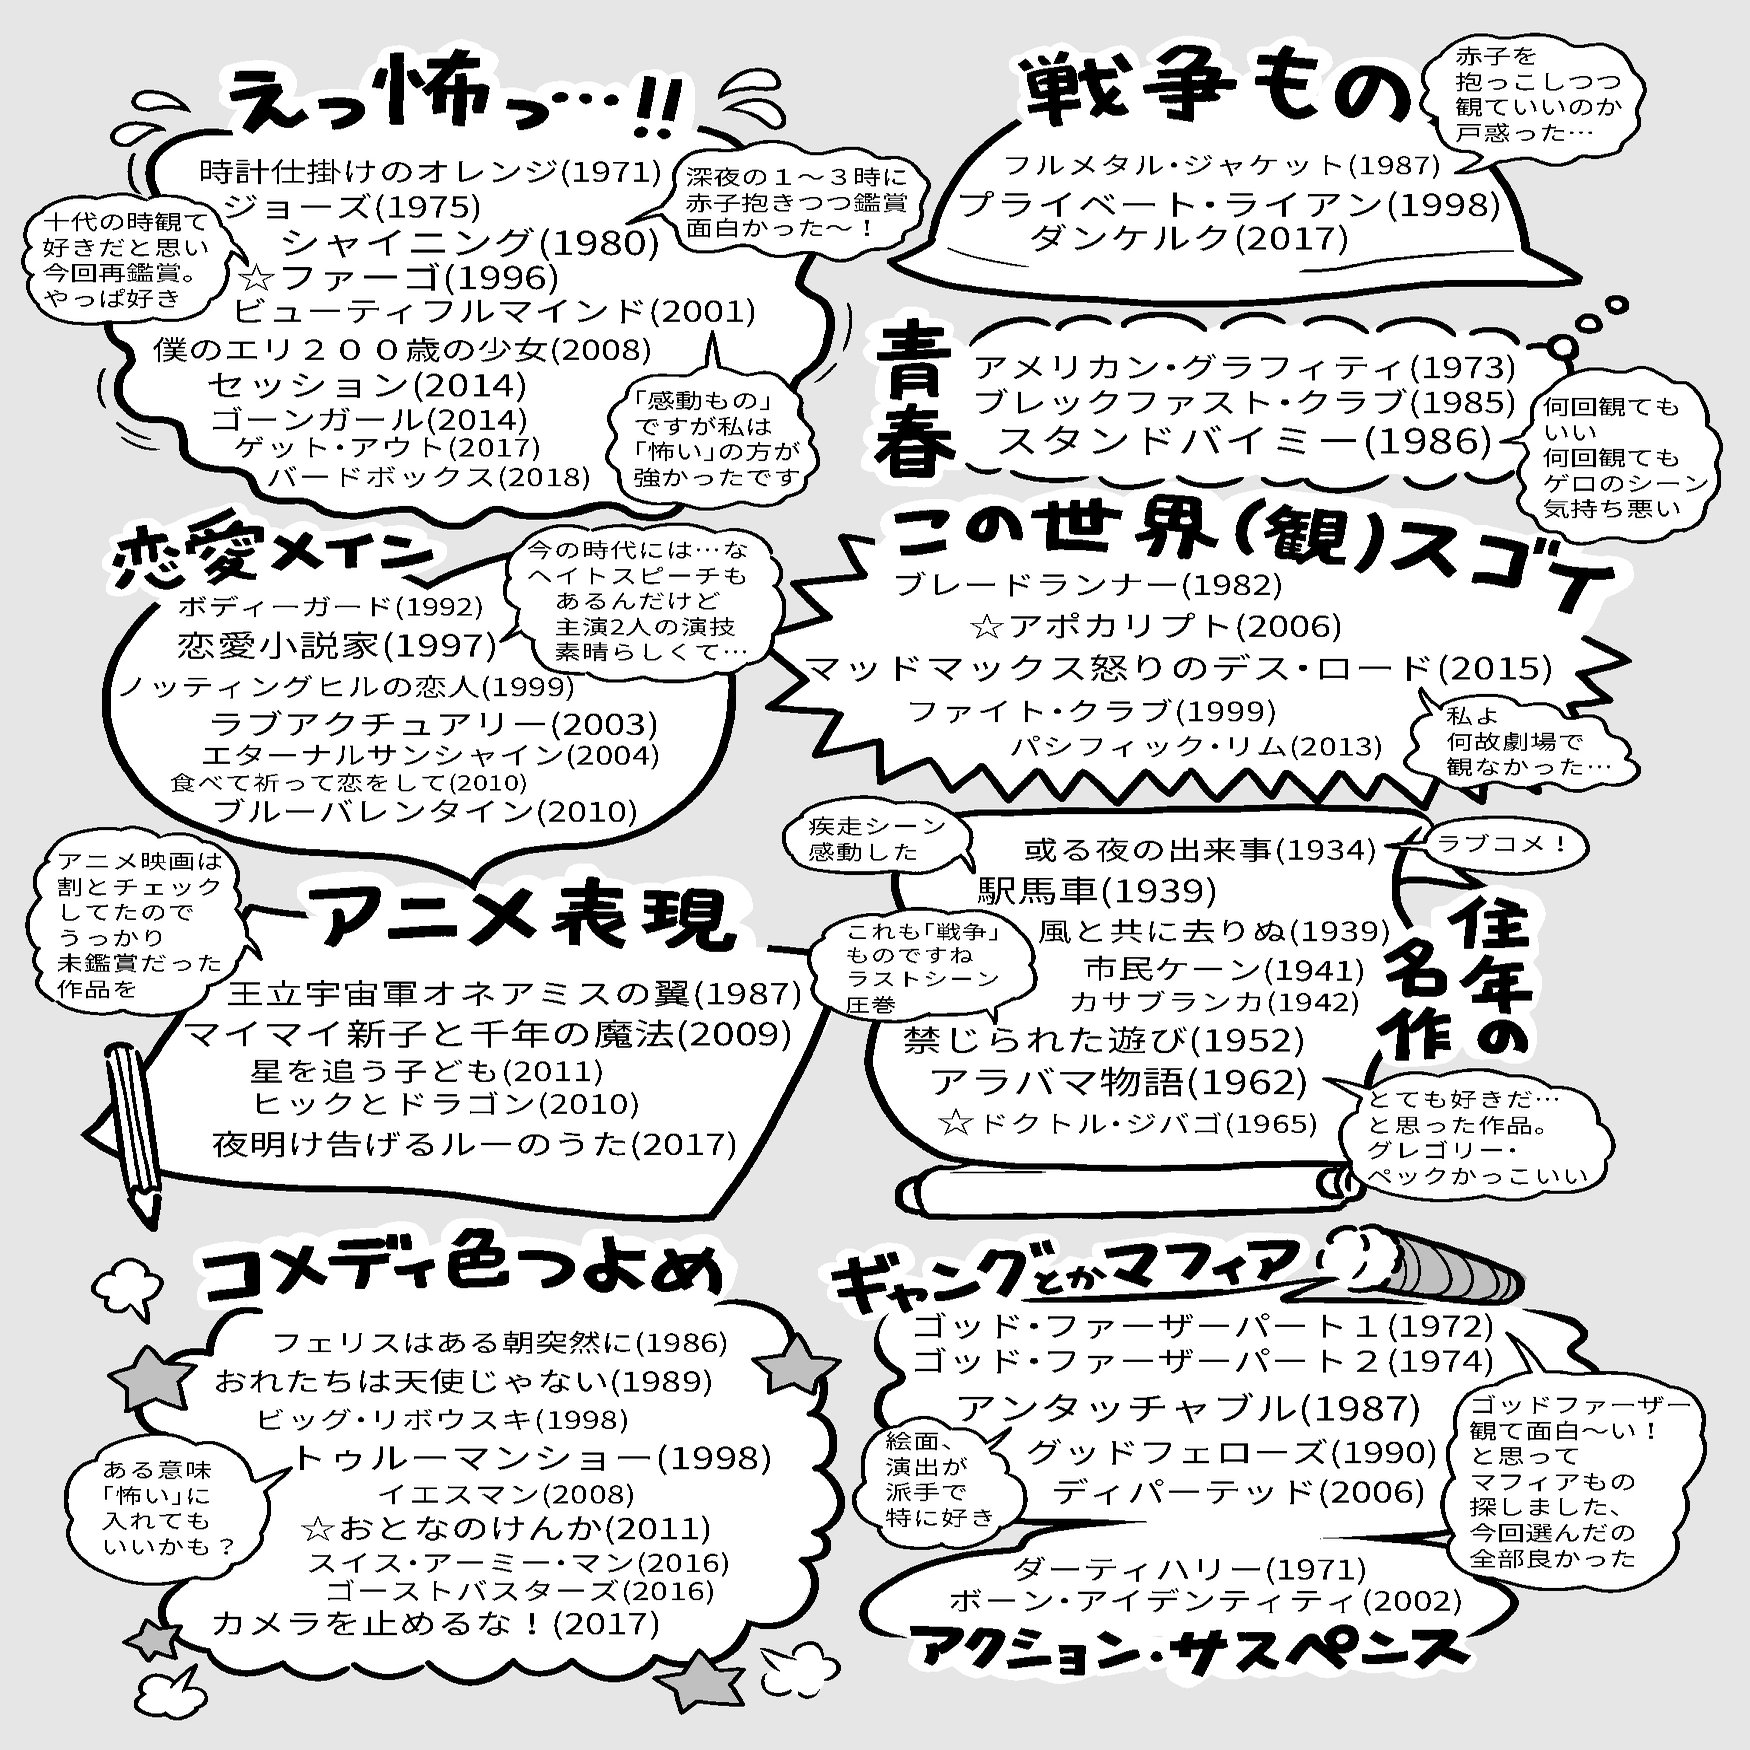 えっ怖っ…!!
時計仕掛けのオレンジ(1971)
ジョーズ(1975)
シャイニング(1980)
☆ファーゴ(1996)
ビューティフルマインド(2001)
僕のエリ２００歳の少女(2008)
セッション(2014)
ゴーンガール(2014)
ゲット・アウト(2017)
バードボックス(2018)
深夜の１〜３時に
赤子抱きつつ鑑賞
面白かった〜！
十代の時観て
好きだと思い
今回再鑑賞。
やっぱ好き
「感動もの」
ですが私は
「怖い」の方が
強かったです
戦争もの
フルメタル・ジャケット(1987)
プライベート・ライアン(1998)
ダンケルク(2017)
赤子を
抱っこしつつ
観ていいのか
戸惑った…
青春
アメリカン・グラフィティ(1973)
ブレックファスト・クラブ(1985)
スタンドバイミー(1986)
何回観ても
いい
何回観ても
ゲロのシーン
気持ち悪い
恋愛メイン
ボディーガード(1992)
恋愛小説家(1997)
ノッティングヒルの恋人(1999)
ラブアクチュアリー(2003)
エターナルサンシャイン(2004)
食べて祈って恋をして(2010)
ブルーバレンタイン(2010)
今の時代には…な
ヘイトスピーチも
あるんだけど
主演2人の演技
素晴らしくて…
この世界(観)スゴイ
ブレードランナー(1982)
☆アポカリプト(2006)
マッドマックス怒りのデス・ロード(2015)
ファイト・クラブ(1999)
パシフィック・リム(2013)
私よ
何故劇場で
観なかった…
アニメ表現
王立宇宙軍オネアミスの翼(1987)
マイマイ新子と千年の魔法(2009)
星を追う子ども(2011)
ヒックとドラゴン(2010)
夜明け告げるルーのうた(2017)
アニメ映画は
割とチェック
してたので
うっかり
未鑑賞だった
作品を
住年の
名作
或る夜の出来事(1934)
駅馬車(1939)
風と共に去りぬ(1939)
市民ケーン(1941)
カサブランカ(1942)
禁じられた遊び(1952)
アラバマ物語(1962)
☆ドクトル・ジバゴ(1965)
疾走シーン
感動した
ラブコメ！
これも「戦争」
ものですね
ラストシーン
圧巻
とても好きだ…
と思った作品。
グレゴリー・
ペックかっこいい
コメディ色つよめ
フェリスはある朝突然に(1986)
おれたちは天使じゃない(1989)
ビッグ・リボウスキ(1998)
トゥルーマンショー(1998)
イエスマン(2008)
☆おとなのけんか(2011)
スイス・アーミー・マン(2016)
ゴーストバスターズ(2016)
カメラを止めるな！(2017)
ある意味
「怖い」に
入れても
いいかも？
ギャングとかマフィア
ゴッド・ファーザーパート１(1972)
ゴッド・ファーザーパート２(1974)
アンタッチャブル(1987)
グッドフェローズ(1990)
ディパーテッド(2006)
絵面、
演出が
派手で
特に好き
ゴッドファーザー
観て面白〜い！
と思って
マフィアもの
探しました、
今回選んだの
全部良かった
ダーティハリー(1971)
ボーン・アイデンティティ(2002)
アクション・サスペンス